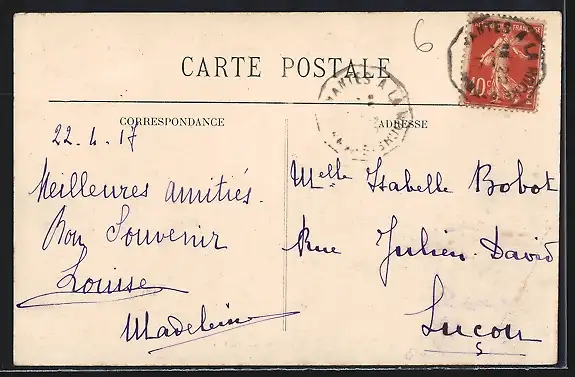 6
CARTE POSTALE
NANTES A LA
NANTES A LA
FRANÇAISE
10c
CORRESPONDANCE
ADRESSE
22.4.17
Meilleures amitiés.
Bon Souvenir
Louise
Madeleine
Melle Isabelle Bobot
Rue Julien David
Luçon